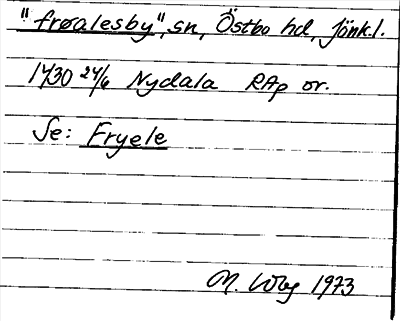 "frøalesby", sn, Östbo hd, Jönk.l.
1430 24/6 Nydala RAp or.
Se: Fryele
M. 1973